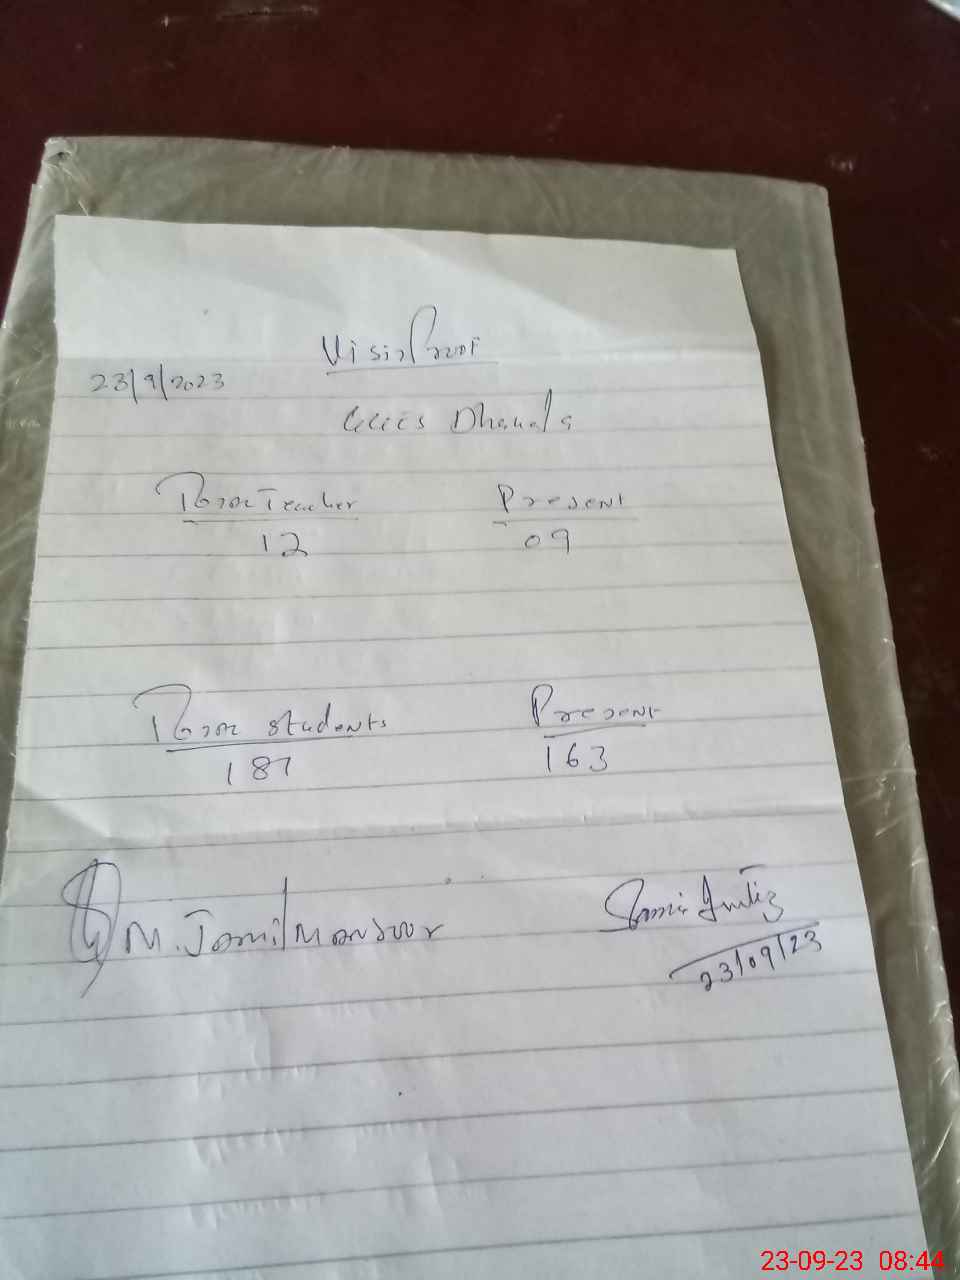 Visit Proof
23/9/2023
Dhamala
Total Teacher Present
12 09
Total Students Present
187 163
M. Jamil Mansoor
23/09/23
23-09-23 08:44